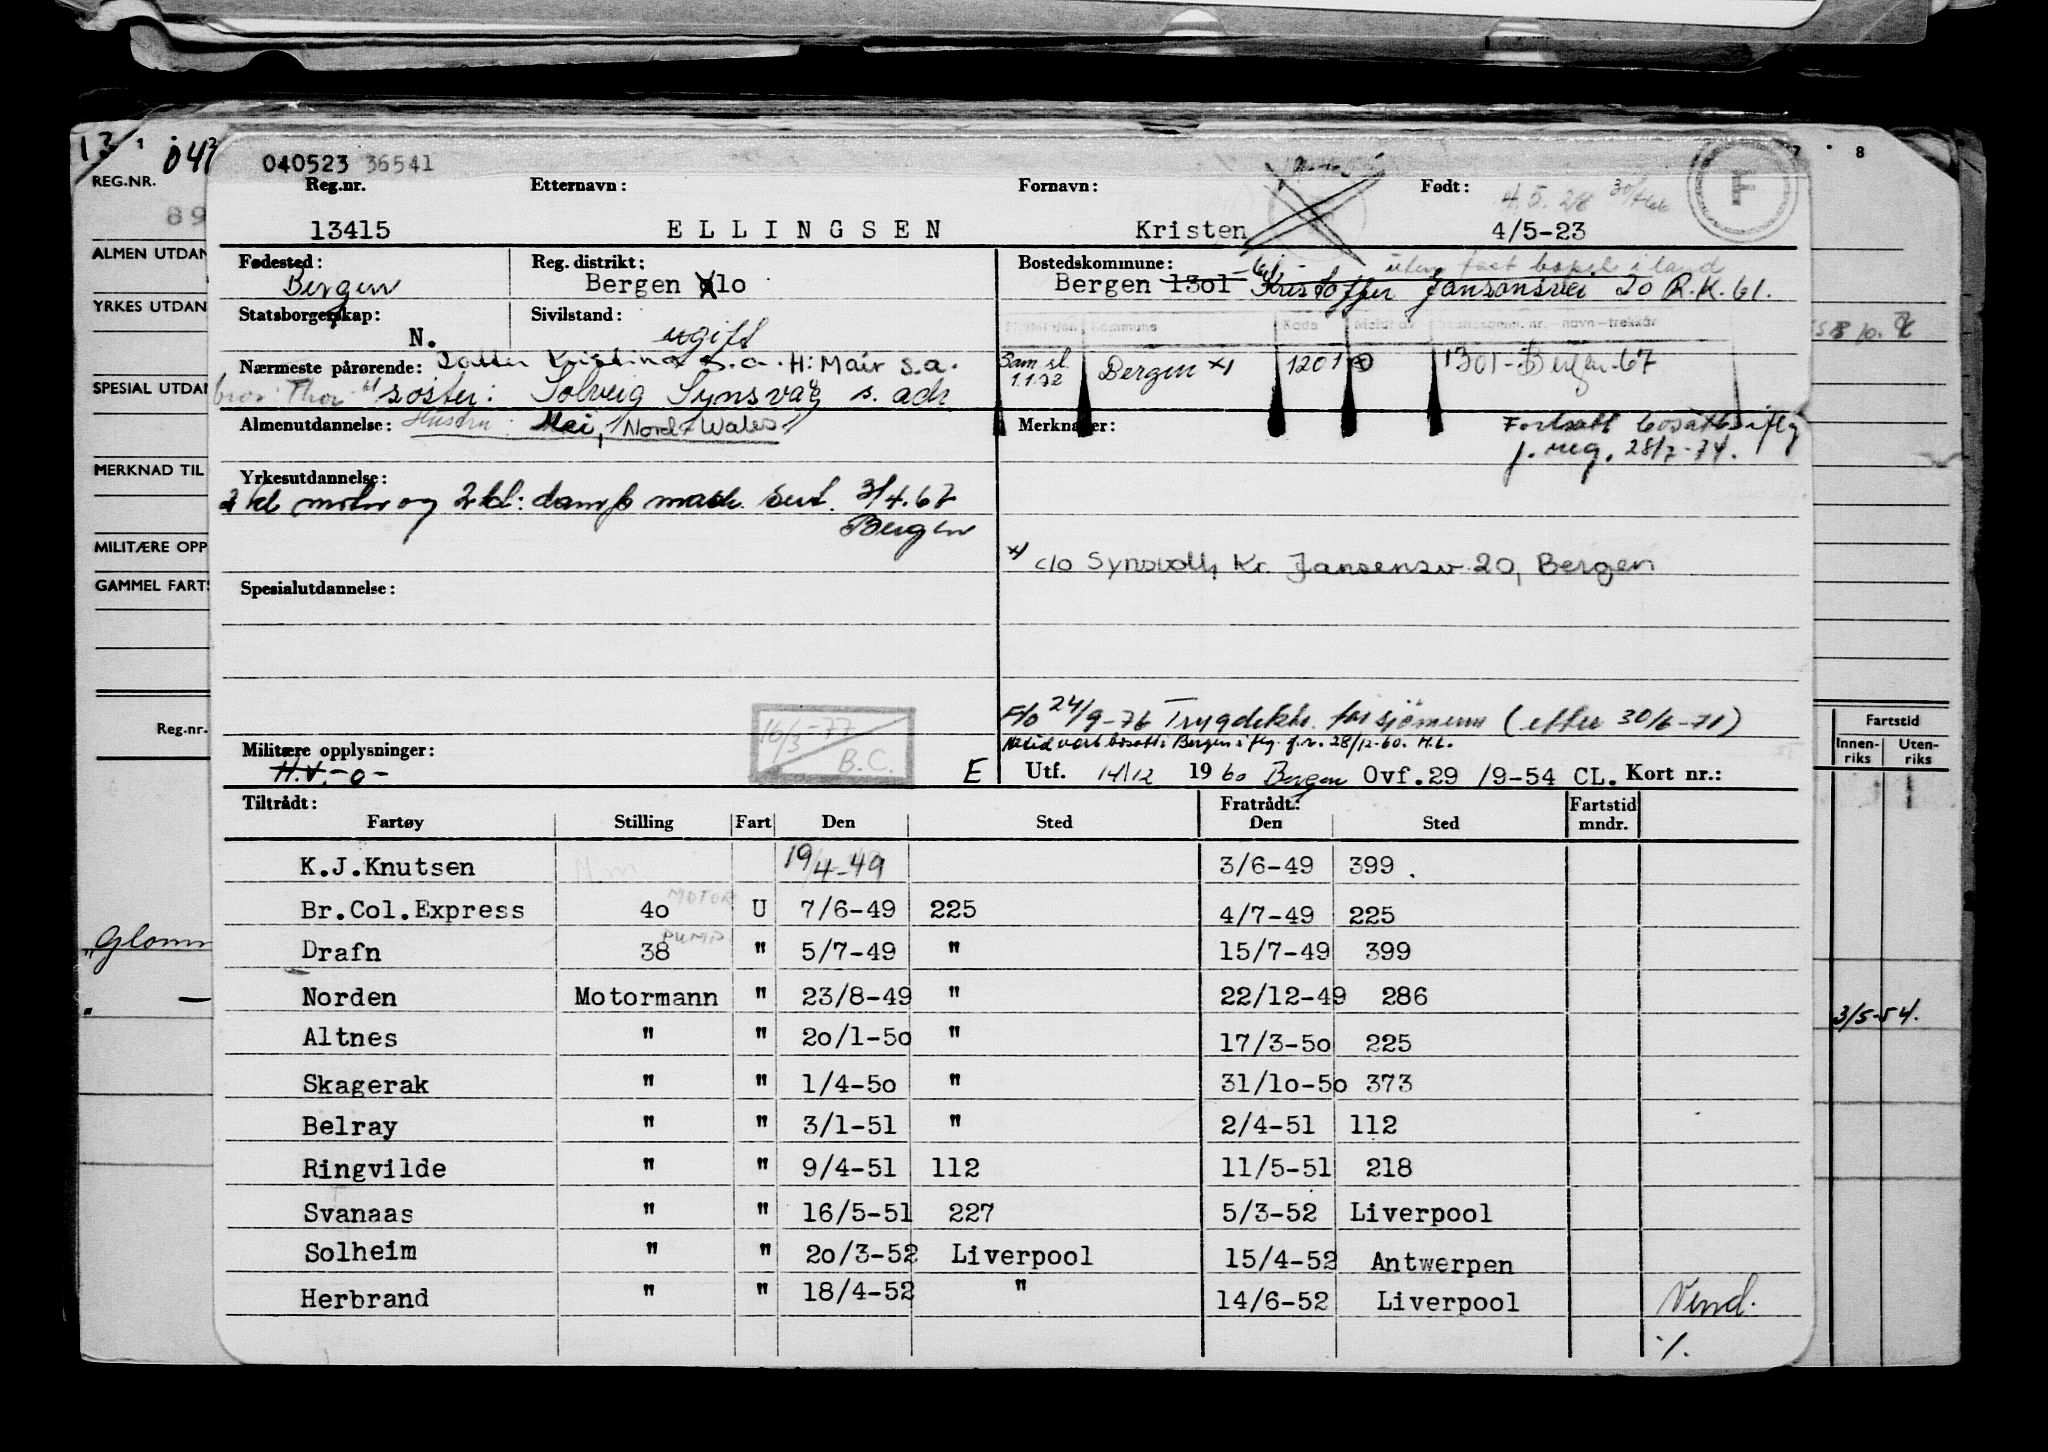 040523 36541
Reg.nr. Etternavn: Fornavn: Født: 4.5.28
13415 ELLINGSEN Kristen 4/5-23 F
Fødested: Bergen Reg. distrikt: Bergen lo Bostedskommune: uten fast bopel i land
Bergen 1301 Kristoffer Jansonsvei 20 R.K. 61.
Statsborgerskap: N. Sivilstand: ugift
Kommune Kode
Nærmeste pårørende: Datter Kristina s.a. H: Mair s.a.
Sam.sl. 1.1.72 Bergen x) 1201 1301-Bergen-67
bror: Thor søster: Solveig Synsvag s. adr.
Almenutdannelse: Hustru: Mei, Nord-Wales
Merknader: Fortsatt bosatt iflg
f. reg. 28/7-74.
Yrkesutdannelse:
2 kl motor og 2 kl: damp mask. sert. 3/4.67
Bergen
x) c/o Synsvoll, Kr. Jansensv. 20, Bergen
Spesialutdannelse:
F/o 24/9-76 Trygdektr. for sjömenn (efter 30/6-71)
Militære opplysninger:
H.V. -o-
16/3-77
B.C.
Altid vært bosatt i Bergen iflg. f.r. 28/12-60. H.L.
E Utf. 14/12 1960 Bergen Ovf.29 /9-54 CL. Kort nr.:
Tiltrådt: Fratrådt: Fartstid
Fartøy Stilling Fart Den Sted Den Sted mndr.
K.J.Knutsen 19/4-49 3/6-49 399
MOTOR
Br.Col.Express 4o U 7/6-49 225 4/7-49 225
PUMP
Drafn 38 " 5/7-49 " 15/7-49 399
Norden Motormann " 23/8-49 " 22/12-49 286
Altnes " " 2o/1-5o " 17/3-5o 225
Skagerak " " 1/4-5o " 31/1o-5o 373
Belray " " 3/1-51 " 2/4-51 112
Ringvilde " " 9/4-51 112 11/5-51 218
Svanaas " " 16/5-51 227 5/3-52 Liverpool
Solheim " " 2o/3-52 Liverpool 15/4-52 Antwerpen
Herbrand " " 18/4-52 " 14/6-52 Liverpool Vend.
./.
13 1
REG.NR.
89
ALMEN UTDAN
YRKES UTDAN
SPESIAL UTDAN
MERKNAD TIL
MILITÆRE OPP
GAMMEL FARTS
Reg.nr.
"Glomm
" —
8
Fartstid
Innen-riks Uten-riks
3/5-54.